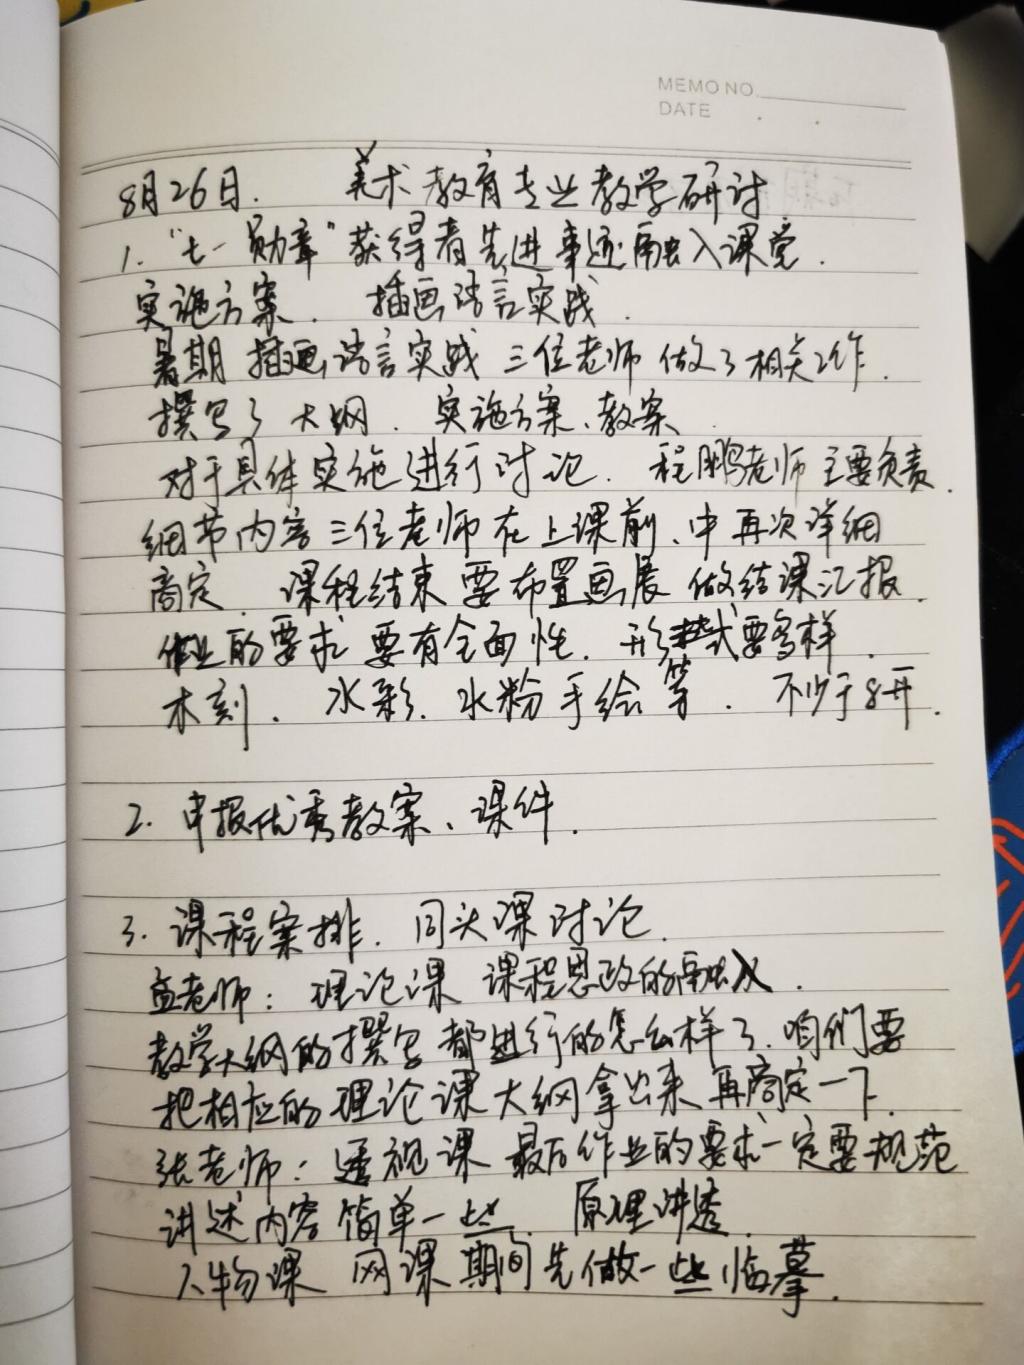 MEMO NO.
DATE
8月26日. 美术教育专业教学研讨
1. "七一勋章"获得者先进事迹融入课堂.
实施方案. 插画语言实践.
暑期 插画语言实践 三位老师 做了相关工作.
撰写了 大纲. 实施方案、教案.
对于具体实施进行讨论. 程鹏老师主要负责.
细节内容 三位老师在上课前、中再次详细
商定. 课程结束要布置画展 做结课汇报.
作业的要求 要有全面性. 形式要多样.
木刻. 水彩. 水粉手绘等. 不少于8开.
2. 申报优秀教案、课件.
3. 课程案排. 同头课讨论.
孟老师: 理论课 课程思政的融入.
教学大纲的撰写都进行的怎么样了. 咱们要
把相应的理论课大纲拿出来再商定一下.
张老师: 透视课 最后作业的要求一定要规范
讲述内容简单一些. 原理讲透
人物课 网课期间先做一些临摹.